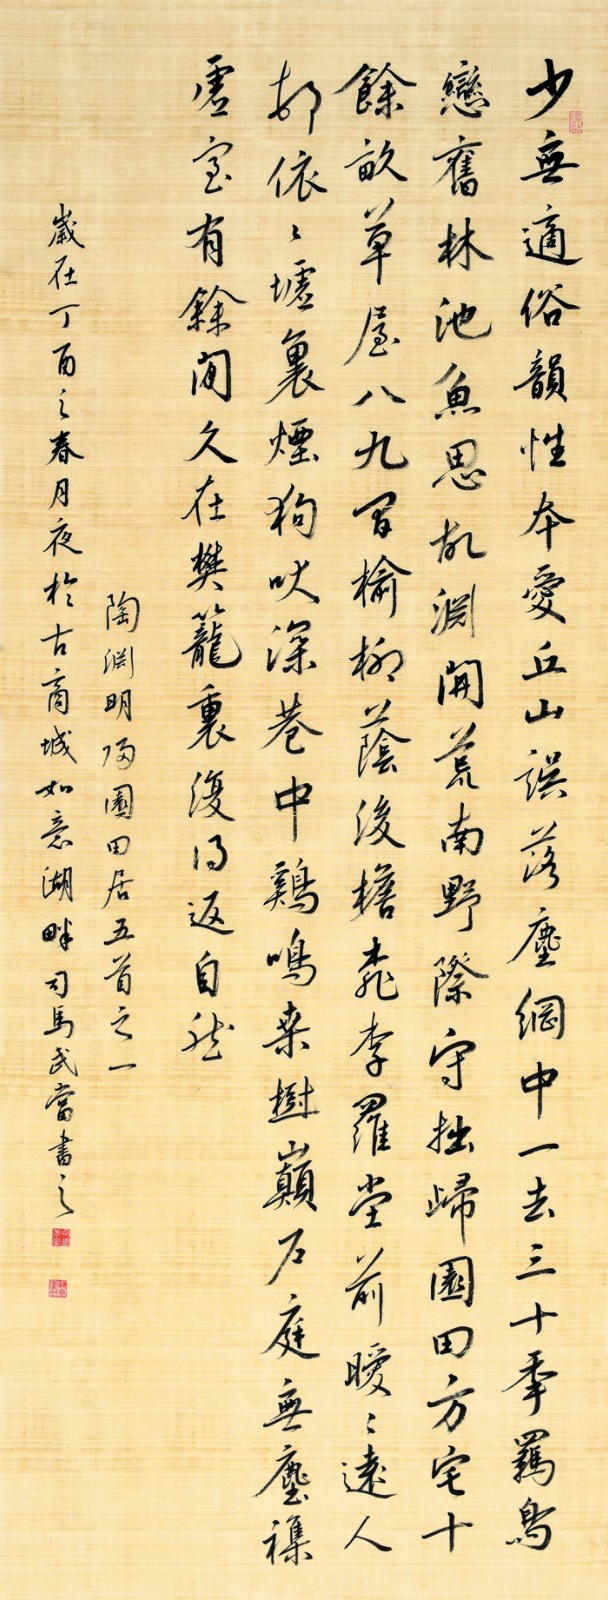 少無適俗韻性本愛丘山誤落塵網中一去三十年羈鳥
戀舊林池魚思故淵開荒南野際守拙歸園田方宅十
餘畝草屋八九間榆柳蔭後檐桃李羅堂前曖〻遠人
邨依〻墟裏煙狗吠深巷中鷄鳴桑樹巔戶庭無塵雜
虛室有餘閒久在樊籠裏復得返自然
陶淵明歸園田居五首之一
歲在丁酉之春月夜於古商城如意湖畔司馬武當書之